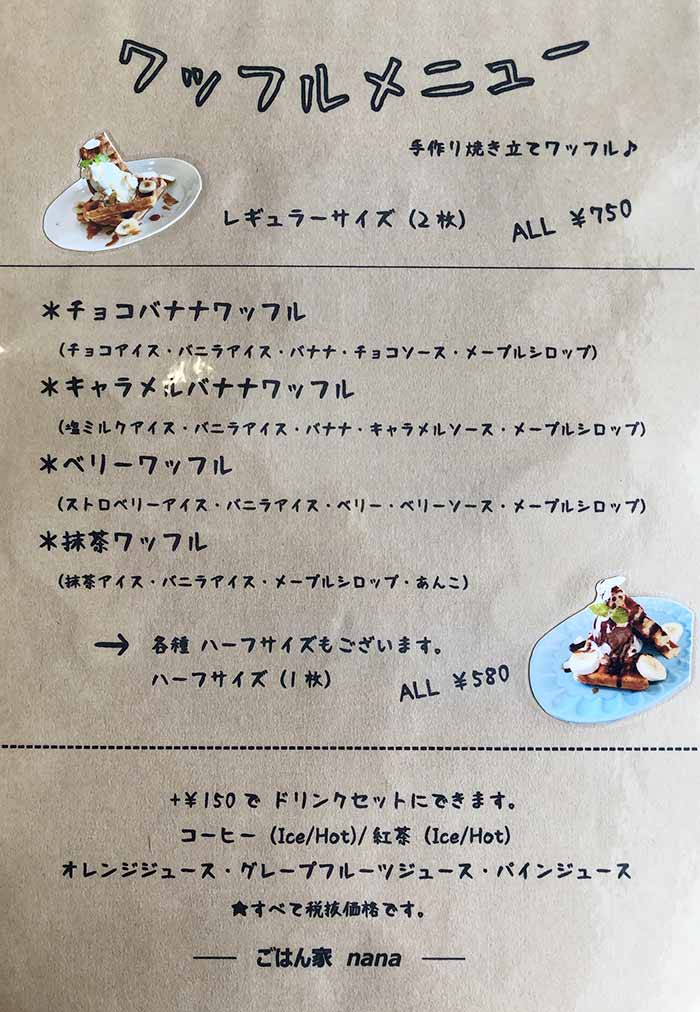 ワッフルメニュー
手作り焼き立てワッフル♪
レギュラーサイズ (2枚) ALL ¥750
＊チョコバナナワッフル
(チョコアイス・バニラアイス・バナナ・チョコソース・メープルシロップ)
＊キャラメルバナナワッフル
(塩ミルクアイス・バニラアイス・バナナ・キャラメルソース・メープルシロップ)
＊ベリーワッフル
(ストロベリーアイス・バニラアイス・ベリー・ベリーソース・メープルシロップ)
＊抹茶ワッフル
(抹茶アイス・バニラアイス・メープルシロップ・あんこ)
→ 各種 ハーフサイズもございます。
ハーフサイズ (1枚) ALL ¥580
+¥150で ドリンクセットにできます。
コーヒー (Ice/Hot)/ 紅茶 (Ice/Hot)
オレンジジュース・グレープフルーツジュース・パインジュース
★すべて税抜価格です。
── ごはん家 nana ──